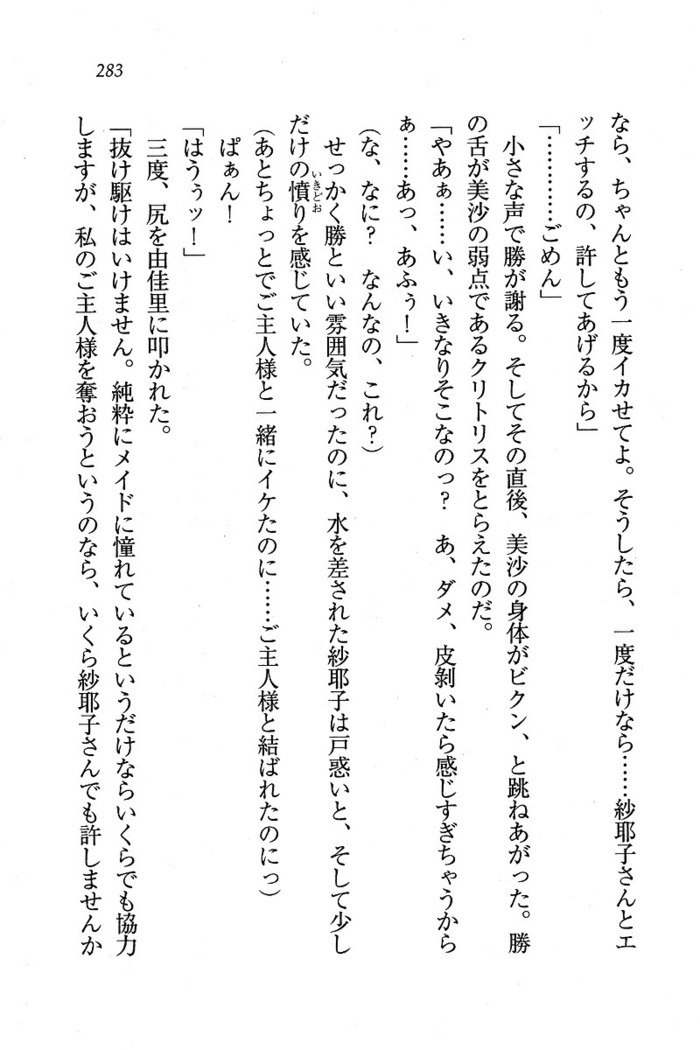 283
なら、ちゃんともう一度イカせてよ。そうしたら、一度だけなら……紗耶子さんとエ
ッチするの、許してあげるから」
「…………ごめん」
小さな声で勝が謝る。そしてその直後、美沙の身体がビクン、と跳ねあがった。勝
の舌が美沙の弱点であるクリトリスをとらえたのだ。
「やあぁ……い、いきなりそこなのっ？　あ、ダメ、皮剝いたら感じすぎちゃうから
ぁ……あっ、あふぅ！」
(な、なに？　なんなの、これ？)
せっかく勝といい雰囲気だったのに、水を差された紗耶子は戸惑いと、そして少し
だけの憤りを感じていた。
いきどお
(あとちょっとでご主人様と一緒にイケたのに……ご主人様と結ばれたのにっ)
ぱぁん！
「はうぅッ！」
三度、尻を由佳里に叩かれた。
「抜け駆けはいけません。純粋にメイドに憧れているというだけならいくらでも協力
しますが、私のご主人様を奪おうというのなら、いくら紗耶子さんでも許しませんか